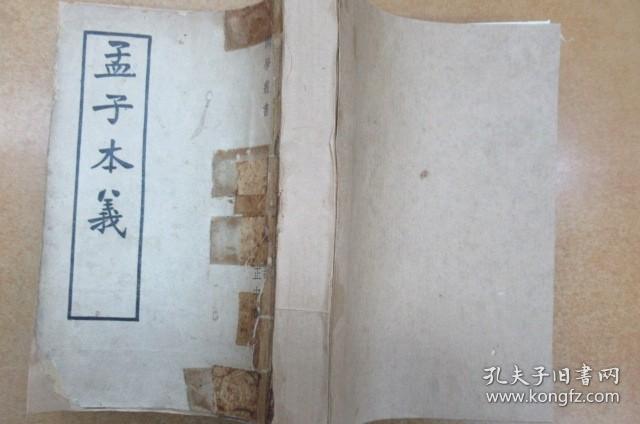 孟子本義
叢書
正中
孔夫子旧书网
www.kongfz.com